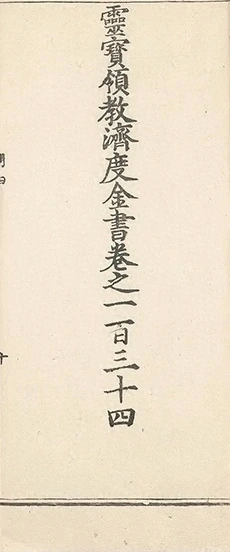 靈寶領教濟度金書卷之一百三十四